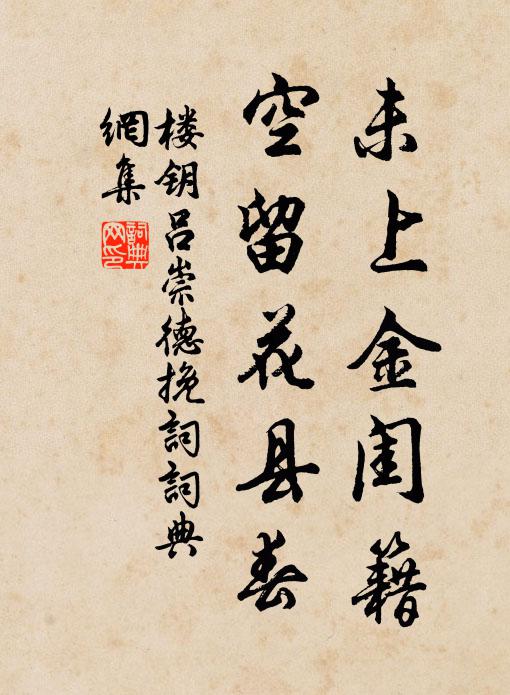 未上金闺籍
空留花县春
楼钥吕崇德挽词词典
網集
詞典
网印